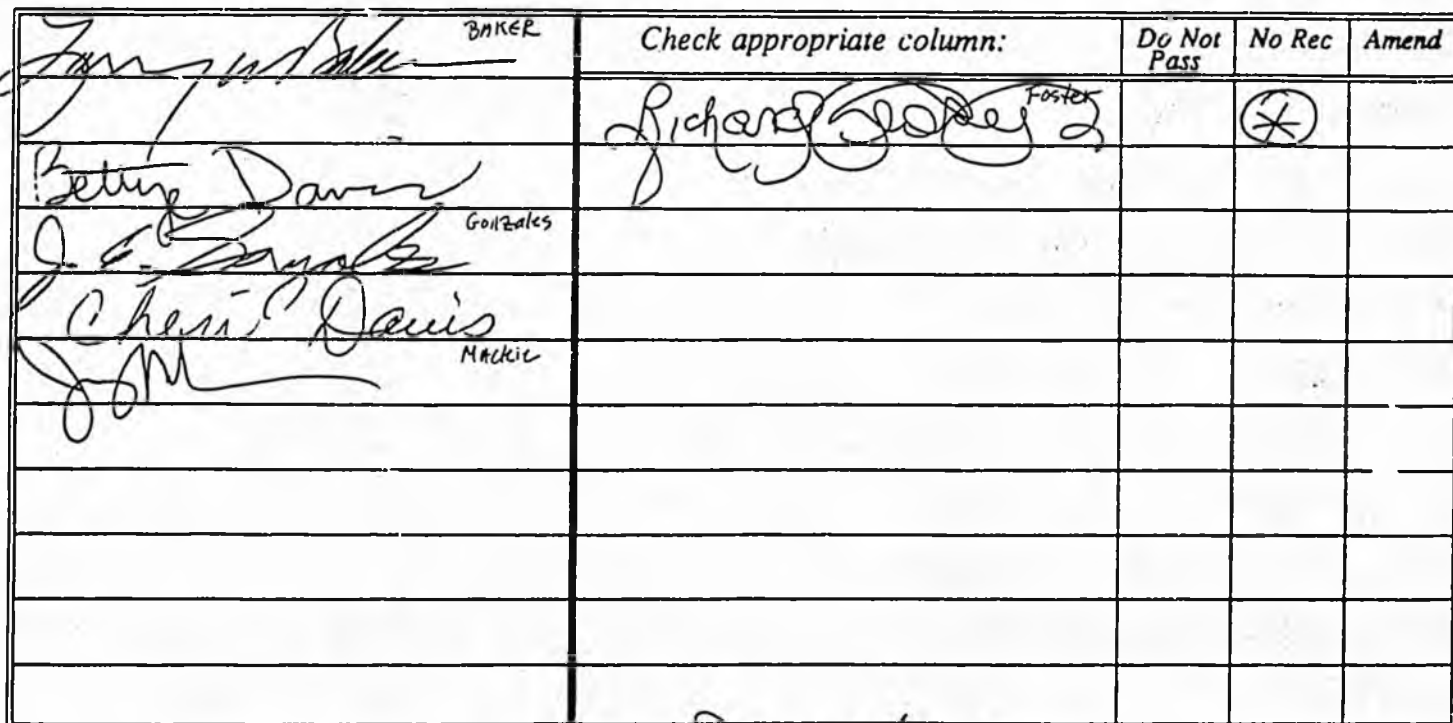 BAKER
Bettye Davis
Gonzales
J. E. Gonzales
Cheri C Davis
Mackie
Check appropriate column:
Do Not Pass
No Rec
Amend
Richard Foster
Foster